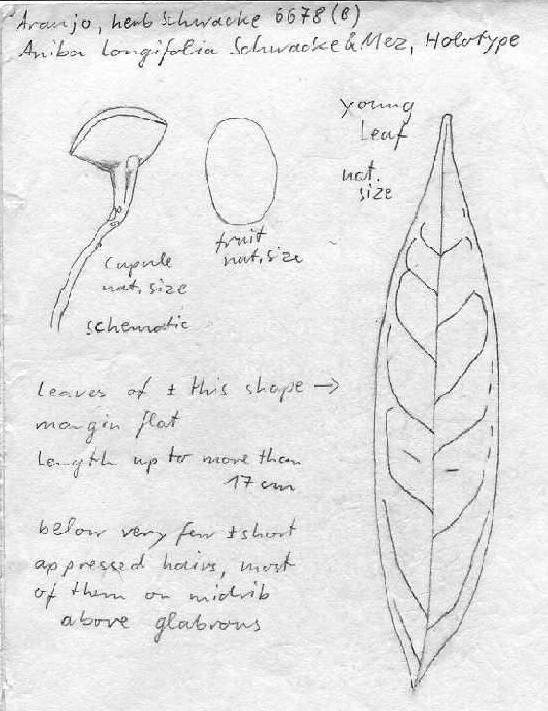 Aranjo, herb Schwacke 6678 (B)
Aniba longifolia Schwacke & Mez, Holotype
young
leaf
nat.
size
fruit
nat. size
cupule
nat. size
schematic
leaves of ± this shape →
margin flat
length up to more than
17 cm
below very few ± short
appressed hairs, most
of them on midrib
above glabrous